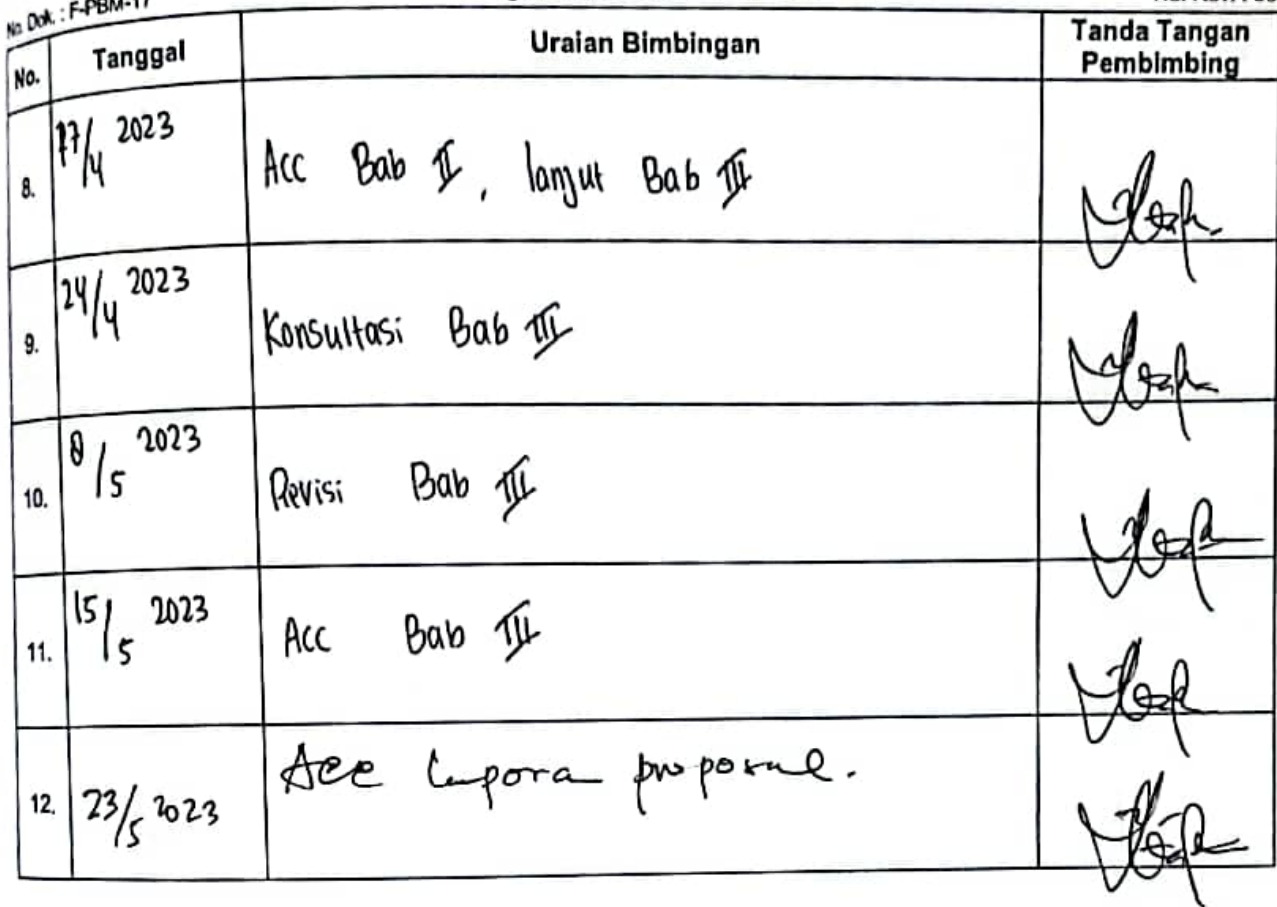 No. Dok. : F-PBM-17
No. Tanggal Uraian Bimbingan Tanda Tangan Pembimbing
8. 17/4 2023 Acc Bab II, lanjut Bab III
9. 24/4 2023 Konsultasi Bab III
10. 8/5 2023 Revisi Bab III
11. 15/5 2023 Acc Bab III
12. 23/5 2023 Acc proposal.